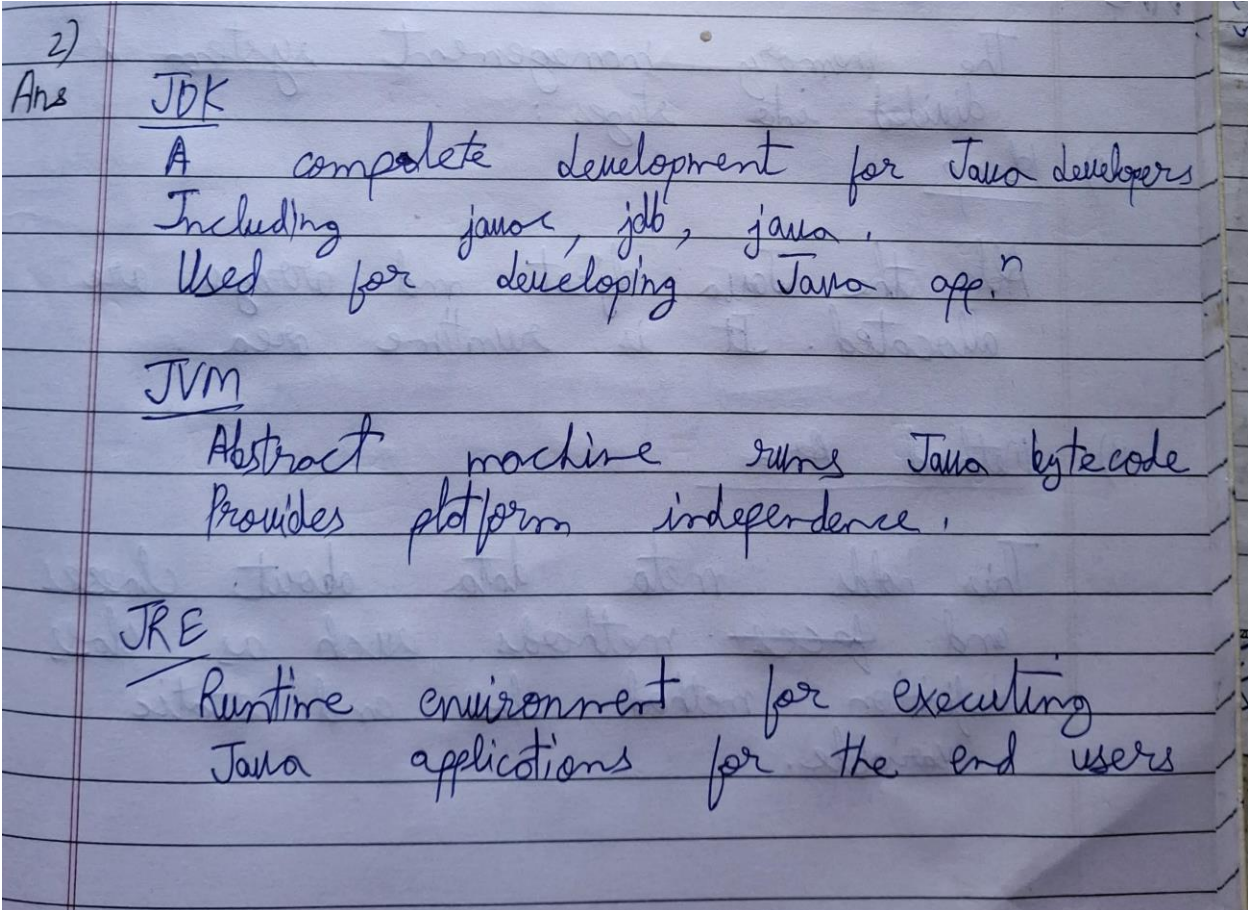 2)
Ans JDK
A complete development for Java developers
Including javac, jdb, java.
Used for developing Java app.ⁿ
JVM
Abstract machine runs Java bytecode
Provides platform independence.
JRE
Runtime environment for executing
Java applications for the end users